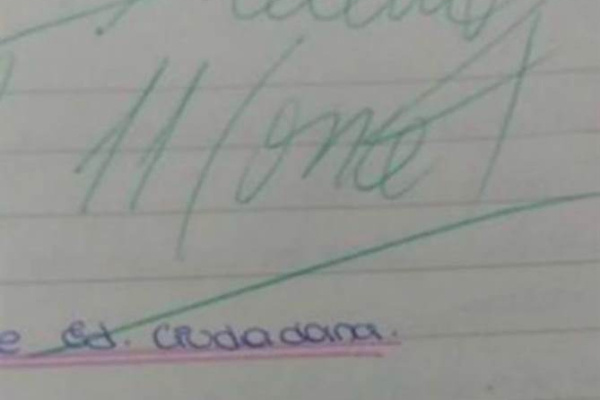 11 (once)
e Ed. Ciudadana.